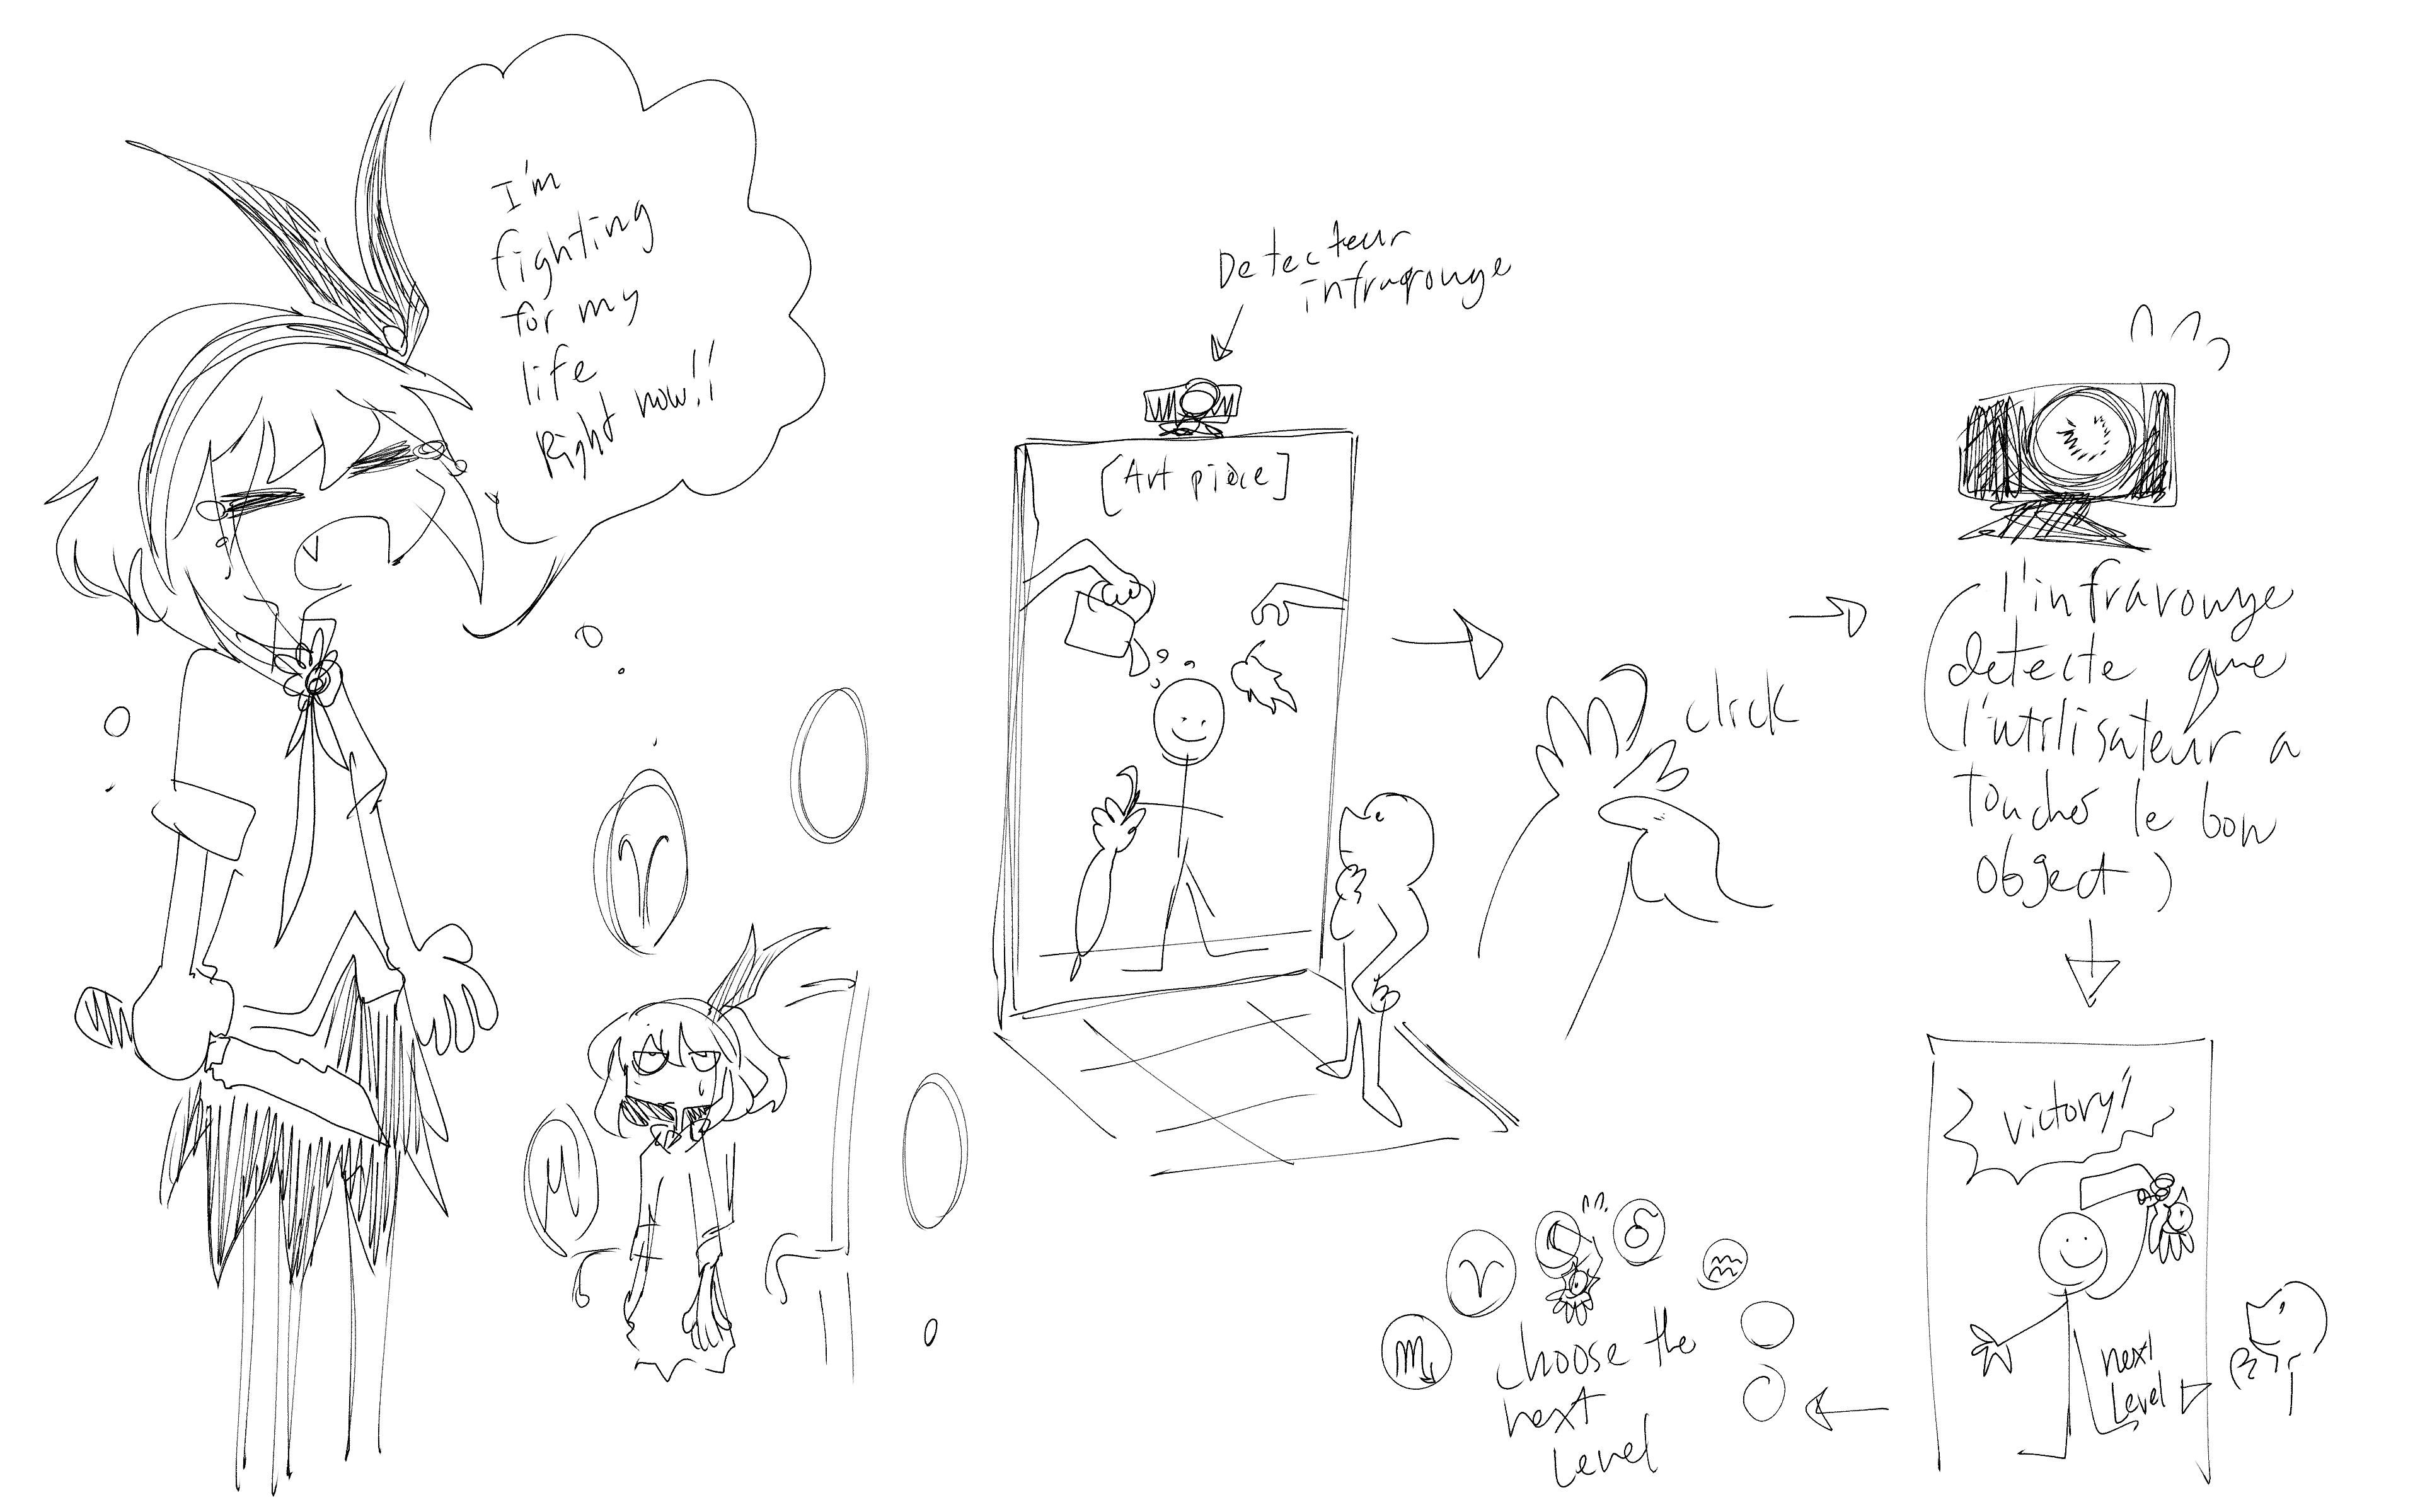 I'm
fighting
for my
life
Right now!!
Detecteur
infrarouge
[Art pièce]
click
(l'infrarouge
detecte que
l'utilisateur a
touché le bon
object)
victory!
next
Level
choose the
next
Level
♈
♏
♈
♒